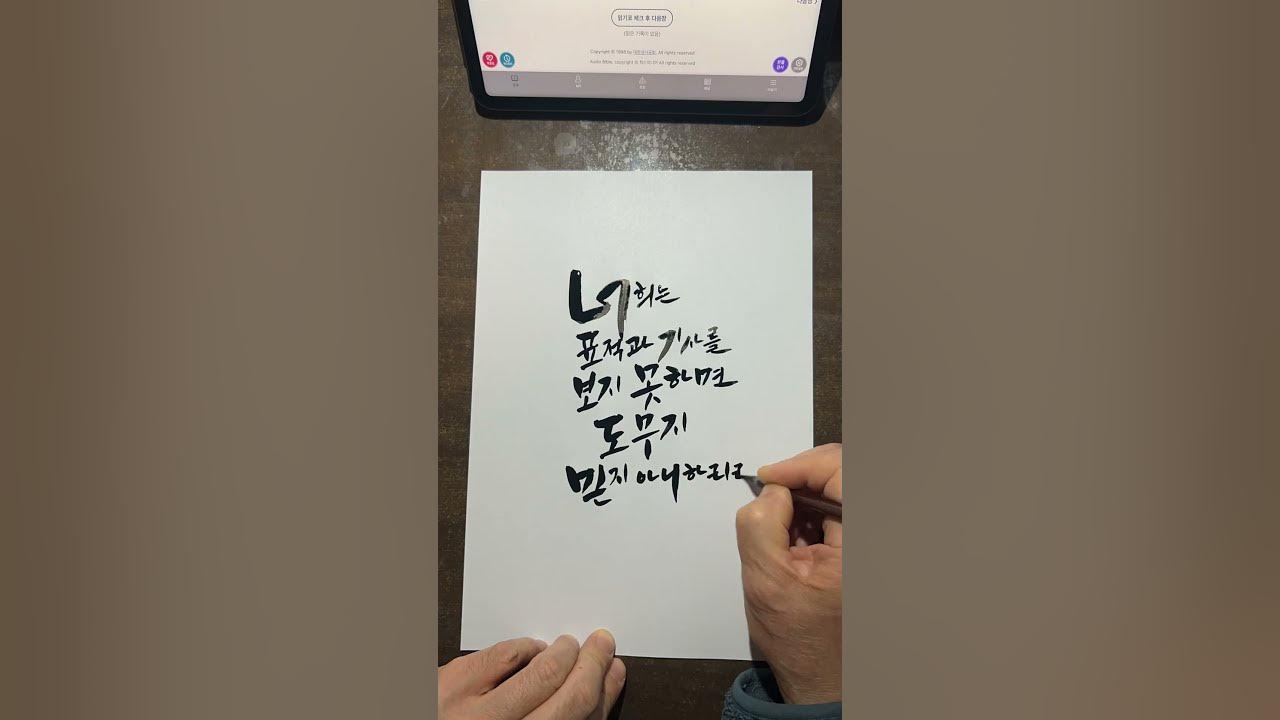 읽기표 체크 후 다음장
(읽은 기록이 없음)
Copyright © by 대한성서공회. All rights reserved
Audio Bible, copyright © All rights reserved
너희는
표적과 기사를
보지 못하면
도무지
믿지 아니하리라